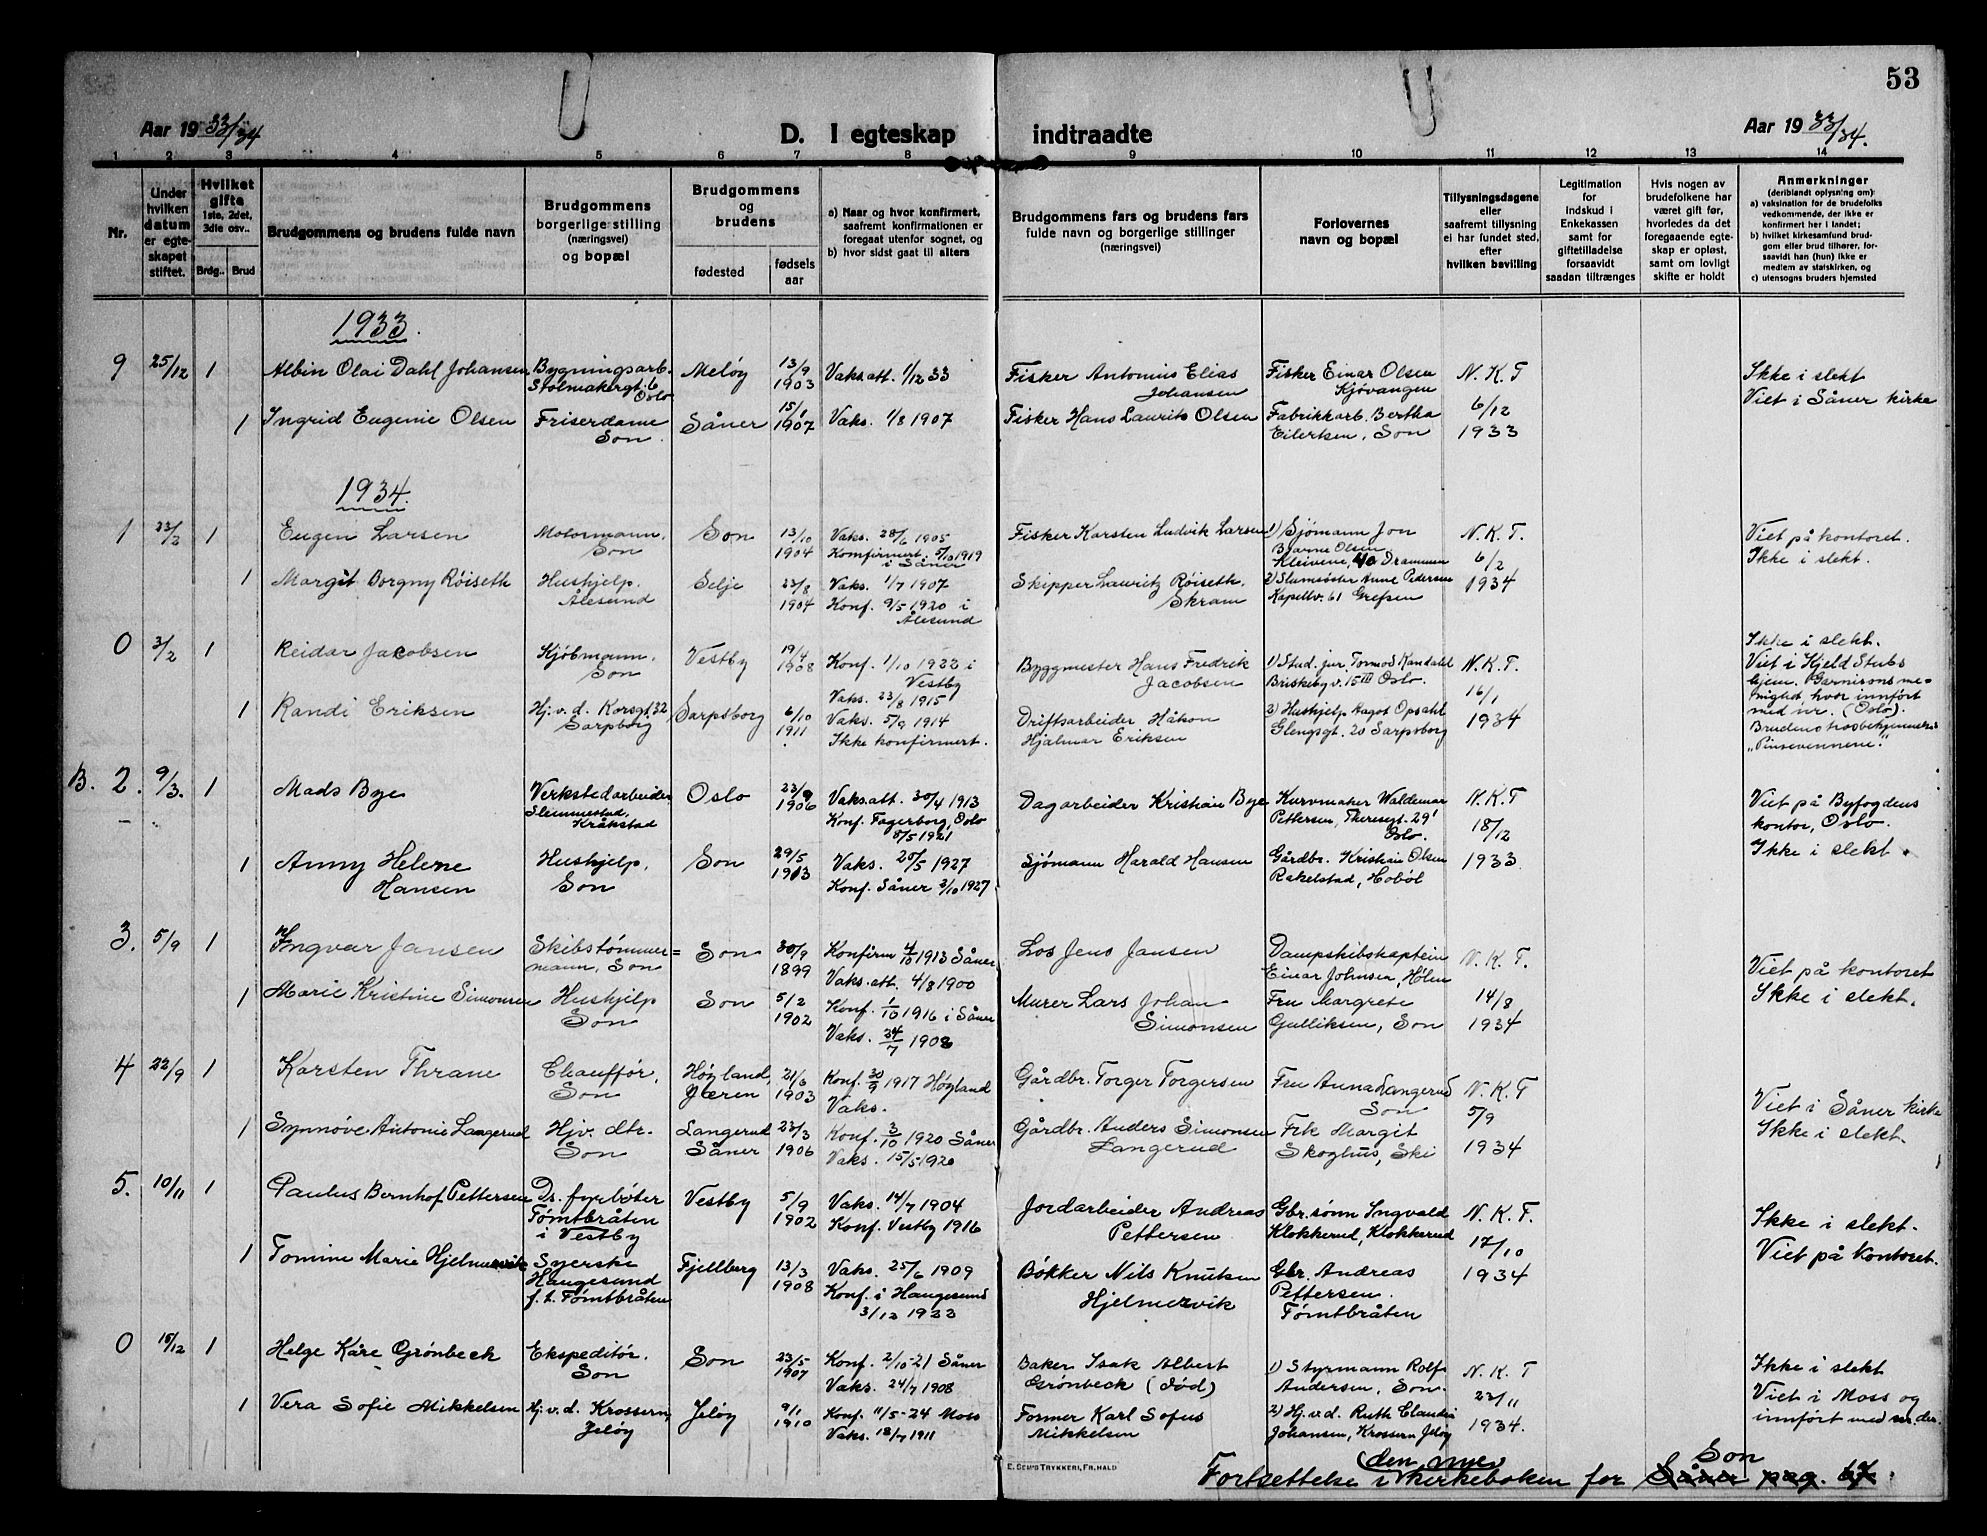 53
Aar 19 33/34
D. I egteskap indtraadte
Aar 19 33/34.
1 2 3 4 5 6 7 8 9 10 11 12 13 14
Nr.
Under hvilken datum er egteskapet stiftet.
Hvilket gifte 1ste, 2det, 3dle osv..
Brdg.. Brud
Brudgommens og brudens fulde navn
Brudgommens borgerlige stilling (næringsvei) og bopæl
Brudgommens og brudens
fødested
fødselsaar
a) Naar og hvor konfirmert, saafremt konfirmationen er foregaat utenfor sognet, og
b) hvor sidst gaat til alters
Brudgommens fars og brudens fars fulde navn og borgerlige stillinger (næringsvei)
Forlovernes navn og bopæl
Tillysningsdagene eller saafremt tillysning ei har fundet sted, efter hvilken bavilling
Legitimation for Indskud i Enkekassen samt for giftetilladelse forsaavidt saadan tiltrænges
Hvis nogen av brudefolkene har været gift før, hvorledes da det foregaaende egteskap er opløst, samt om lovligt skifte er holdt
Anmerkninger (deriblandt oplysning om)
a) vaksination for de brudefolks vedkommende, der ikke er konfirmert her i landet;
b) hvilket kirkesamfund brudgom eller brud tilhører, forsaavidt han (hun) ikke er medlem av statskirken, og
c) utensogns bruders hjemsted
1933.
9 25/12 1 Albin Olai Dahl Johansen Bygningsarb. Stolmakergt. 6 Oslo Meløy 13/9 1903 Vaks.att. 1/12 33 Fisker Antonius Elias Johansen Fisker Einar Olsen Kjøvangen N. K. T Ikke i slekt
1 Ingrid Eugenie Olsen Friserdame Son Såner 15/1 1907 Vaks. 1/8 1907 Fisker Hans Laurits Olsen Fabrikkarb. Bertha Eilertsen, Son 6/12 1933 Viet i Såner kirke
1934.
1 23/2 1 Eugen Larsen Motormann, Son Son 13/10 1904 Vaks. 28/6 1905 Komfirmert 5/10 1919 i Såner Fisker Karsten Ludvik Larsen 1) Sjømann Jon Bjarne Olsen Kleivene, 40 Drammen N. K. T. 6/2 Viet på kontoret. Ikke i slekt.
1 Margit Borgny Røiseth Hushjelp. Ålesund Selje 23/8 1904 Vaks. 1/7 1907 Konf. 9/5 1920 i Ålesund Skipper Lauritz Røiseth. Skram 2) Slumsøster Anne Pedersen Kapellv. 61 Grefsen 1934
0 3/2 1 Reidar Jacobsen Kjøbmann, Son Vestby 19/4 1908 Konf. 1/10 1922 i Vestby Vaks. 23/8 1915 Byggmester Hans Fredrik Jacobsen 1) Stud. jur. Tormod Kandahl Briskebyv. 15 III Oslo. N. K. T. 16/1 Ikke i slekt. Viet i Kjeld Stubs hjem. Garnisonsmenighet hvor innført med nr. (Oslo).
1 Randi Eriksen Hj. v. d. Korsgt. 32 Sarpsborg Sarpsborg 6/10 1911 Vaks. 5/9 1914 Ikke konfirmert. Driftsarbeider Håkon Hjalmar Eriksen 2) Hushjelp Aagot Opsahl Glengsgt. 20 Sarpsborg 1934 Brudens trosbekjennelse „Pinsevennene."
B. 2. 9/3. 1 Mads Bye Verkstedarbeider Slemmestad, Kråkstad Oslo 23/9 1906 Vaks.att. 30/4 1913 Konf. Fagerborg, Oslo 8/5 1921 Dagarbeider Kristian Bye Kurvmaker Waldemar Pettersen, Theresgt. 29' Oslo. N. K. T 18/12 Viet på Byfogdens kontor, Oslo.
1 Anny Helene Hansen Hushjelp, Son Son 29/5 1913 Vaks. 20/5 1927 Konf. Såner 2/10 1927 Sjømann Harald Hansen Gårdbr. Kristian Olsen Rakelstad, Hobøl 1933 Ikke i slekt.
3. 5/9 1 Yngvar Jansen Skibstømmermann, Son Son 30/9 1899 Konfirm 4/10 1913 Såner Vaks. att. 4/8 1900 Los Jens Jansen Dampskibskaptein Einar Johnsen, Hølen N. K. T. Viet på kontoret
1 Marie Kristine Simonsen Hushjelp Son Son 5/2 1902 Konf. 1/10 1916 i Såner Vaks. 24/7 1908 Murer Lars Johan Simonsen Fru Margrete Gulliksen, Son 14/8 1934 Ikke i slekt.
4 22/9 1 Karsten Thrane Chauffør, Son Høyland, Jæren 21/6 1903 Konf. 30/9 1917 Høyland Vaks. Gårdbr. Torger Torgersen Fru Anna Langerud Son N. K. T 5/9 Viet i Såner kirke
1 Synnøve Antonie Langerud Hjv. dtr. Son Langerud Såner 23/3 1906 Konf. 3/10 1920 Såner Vaks. 15/5 1920 Gårdbr. Anders Simonsen Langerud Frk Margit Skoghus, Ski 1934 Ikke i slekt.
5. 10/11 1 Paulus Bernhof Pettersen Ds. fyrbøter Tømtbråten i Vestby Vestby 5/9 1902 Vaks. 14/7 1904 Konf. Vestby 1916 Jordarbeider Andreas Pettersen Gbr. sønn Ingvald Klokkerud, Klokkerud N. K. T. 17/10 Ikke i slekt.
1 Tomine Marie Hjelmervik Syerske Haugesund f. t. Tømtbråten Fjellberg 13/3 1908 Vaks. 25/6 1909 Konf. i Haugesund 3/12 1922 Bøkker Nils Knutsen Hjelmervik Gbr. Andreas Pettersen. Tømtbråten 1934 Viet på kontoret.
0 15/12 1 Helge Kåre Grønbeck Ekspeditør. Son Son 23/5 1907 Konf. 2/10-21 Såner Vaks. 24/7 1908 Baker Isak Albert Grønbeck (død) 1) Styrmann Rolf Andersen, Son. N. K. T 22/11 Ikke i slekt
1 Vera Sofie Mikkelsen Hj. v. d. Krossern, Jeløy Jeløy 9/1 1910 Konf. 11/5-24 Moss Vaks. 18/7 1911 Former Karl Sofus Mikkelsen 2) Hj. v. d. Ruth Claudia Johansen, Krossern Jeløy 1934. Viet i Moss og innført med nr. der.
E. Sem's Trykkeri, Fr.hald
Fortsettelse i (den nye) kirkeboken for Son Såner pag. 67.